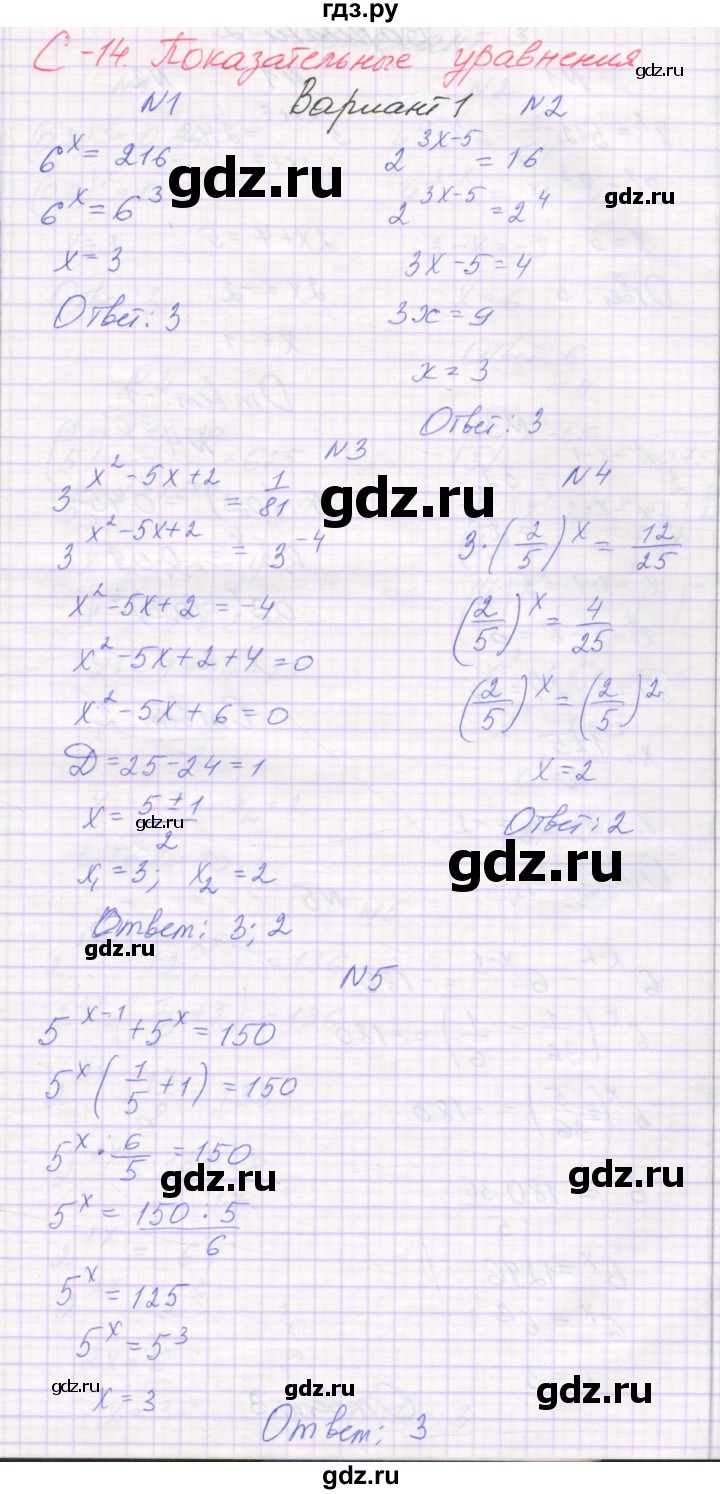 гдз.ру
С-14. Показательные уравнения
gdz.ru
N1 Вариант 1 N2
6^x = 216
gdz.ru
6^x = 6^3
x = 3
Ответ: 3
2^{3x-5} = 16
gdz.ru
2^{3x-5} = 2^4
3x - 5 = 4
3x = 9
x = 3
Ответ: 3
N3
3^{x^2-5x+2} = 1/81
gdz.ru
3^{x^2-5x+2} = 3^{-4}
x^2 - 5x + 2 = -4
x^2 - 5x + 2 + 4 = 0
x^2 - 5x + 6 = 0
D = 25 - 24 = 1
x = (5 ± 1)/2
gdz.ru
x_1 = 3; x_2 = 2
Ответ: 3; 2
gdz.ru
N4
3·(2/5)^x = 12/25
(2/5)^x = 4/25
(2/5)^x = (2/5)^2
x = 2
Ответ: 2
gdz.ru
N5
5^{x-1} + 5^x = 150
5^x (1/5 + 1) = 150
5^x · 6/5 = 150
gdz.ru
gdz.ru
5^x = (150 · 5)/6
5^x = 125
5^x = 5^3
gdz.ru
x = 3
gdz.ru
gdz.ru
Ответ: 3
gdz.ru